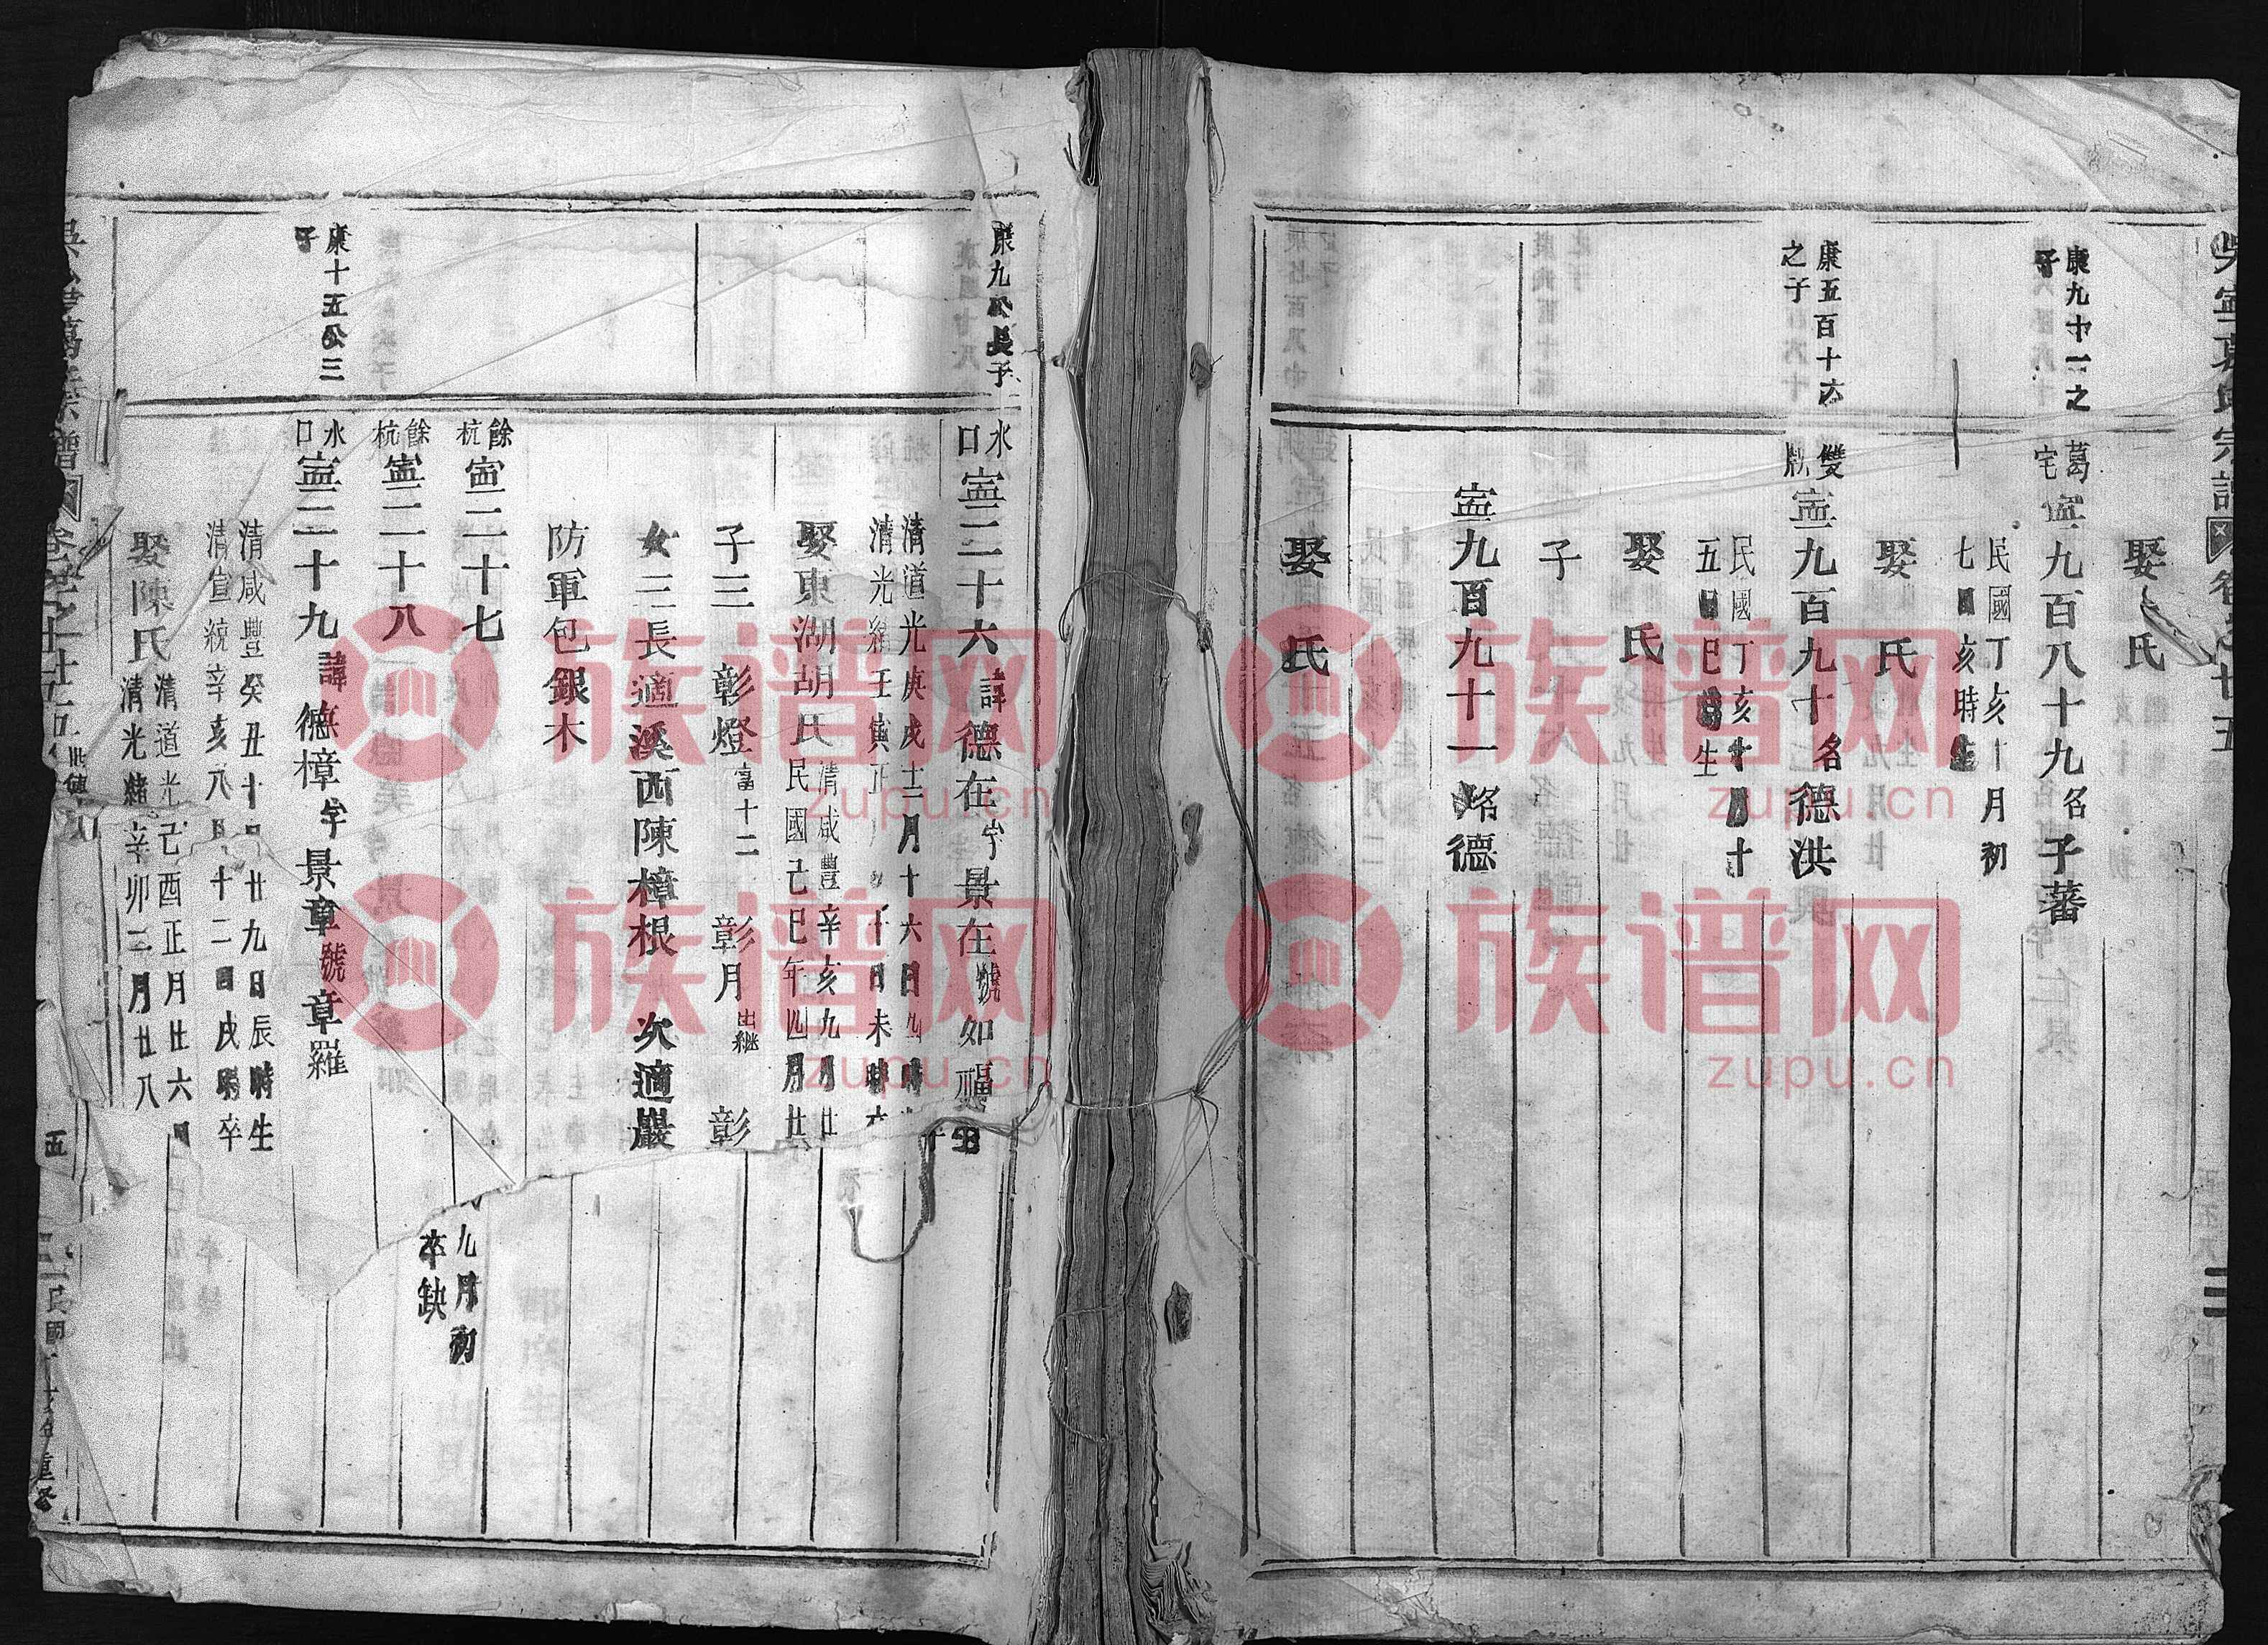 娶 氏
康九十一之
子
葛宅
寍九百八十九名子蕃
民國丁亥十月初
七日亥時生
娶 氏
康五百十六
之子
雙
寍九百九十名德洪
民國丁亥十一月十
五日巳時生
娶 氏
子
寍九百九十一名德
娶 氏
卷之十五
康九公長
子
水口
寍二十六諱德在字景在號如
清道光庚戌十二月十六日
清光緒壬寅正月
娶東湖胡氏
清咸豐辛亥九月廿
民國己巳年四月廿
子三 彰燈富十二 彰月出繼 彰
女三長適溪西陳樟根 次適嚴
防軍包銀木
餘杭
寍二十七
九月初
卒缺
餘杭
寍二十八
康十五公三
子
水口
寍二十九諱德樟字景章號章羅
清咸豐癸丑十月廿九日辰時生
清宣統辛亥八月十二日戌時卒
娶陳氏
清道光己酉正月廿六
清光緒辛卯二月廿八
五
重修
族谱网
zupu.cn
族谱网
zupu.cn
族谱网
zupu.cn
族谱网
zupu.cn